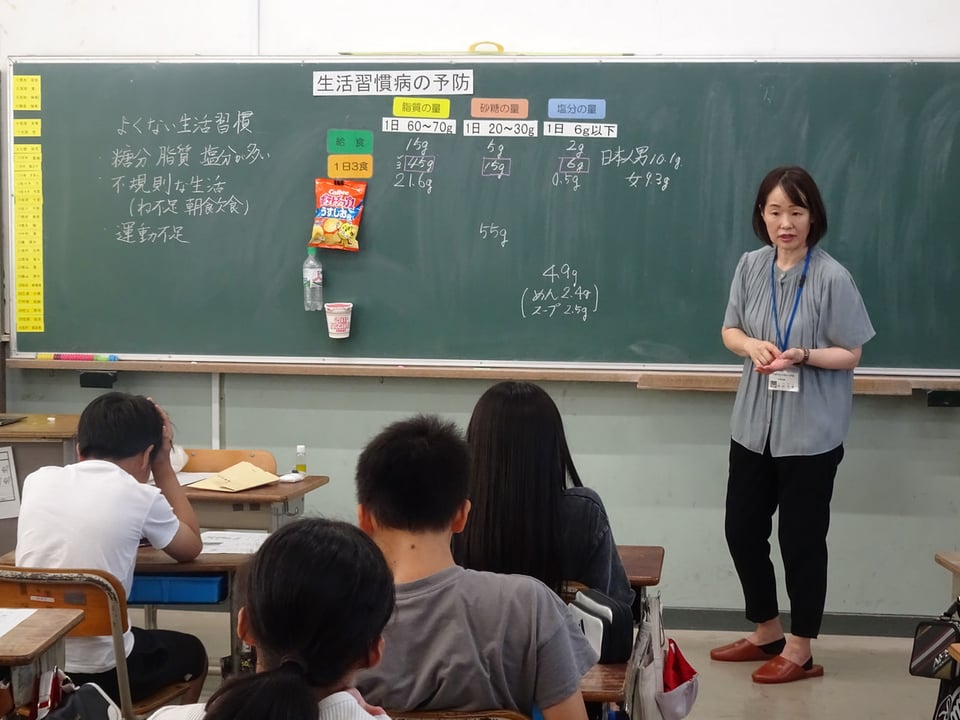 生活習慣病の予防
よくない生活習慣
・糖分 脂質 塩分が多い
・不規則な生活
(ね不足 朝食欠食)
・運動不足
脂質の量 砂糖の量 塩分の量
1日 60~70g 1日 20~30g 1日 6g以下
給食 15g 5g 2g
1日3食 45g 15g 6g 日本人男10.1g
女9.3g
21.6g 0.5g
Calbee
ポテトチップス
うすしお味
55g
4.9g
(めん 2.4g
スープ 2.5g)